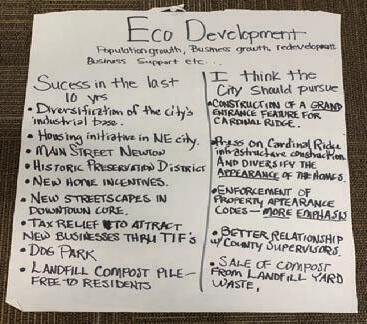 Eco Development
Population growth, Business growth, redevelopment
Business Support etc...
Sucess in the last
10 yrs
• Diversification of the city's
industrial base.
• Housing initiative in NE city.
• MAIN STREET NEWTON
• HISTORIC PRESERVATION DISTRICT
• NEW HOME INCENTIVES.
• NEW STREETSCAPES IN
DOWNTOWN CORE.
• TAX RELIEF TO ATTRACT
NEW BUSINESSES THRU TIF'S
• DOG PARK
• LANDFILL COMPOST PILE-
FREE TO RESIDENTS
I think the
City should pursue
• CONSTRUCTION OF A GRAND
ENTRANCE FEATURE FOR
CARDINAL RIDGE.
• Press on Cardinal Ridge
infrastructure construction
AND DIVERSIFY THE
APPEARANCE OF THE HOMES.
• ENFORCEMENT OF
PROPERTY APTEARANCE
CODES - MORE EMPHASIS
• BETTER RELATIONSHIP
W/ COUNTY SUPERVISORS.
• SALE OF COMPOST
FROM LANDFILL YARD
WASTE.